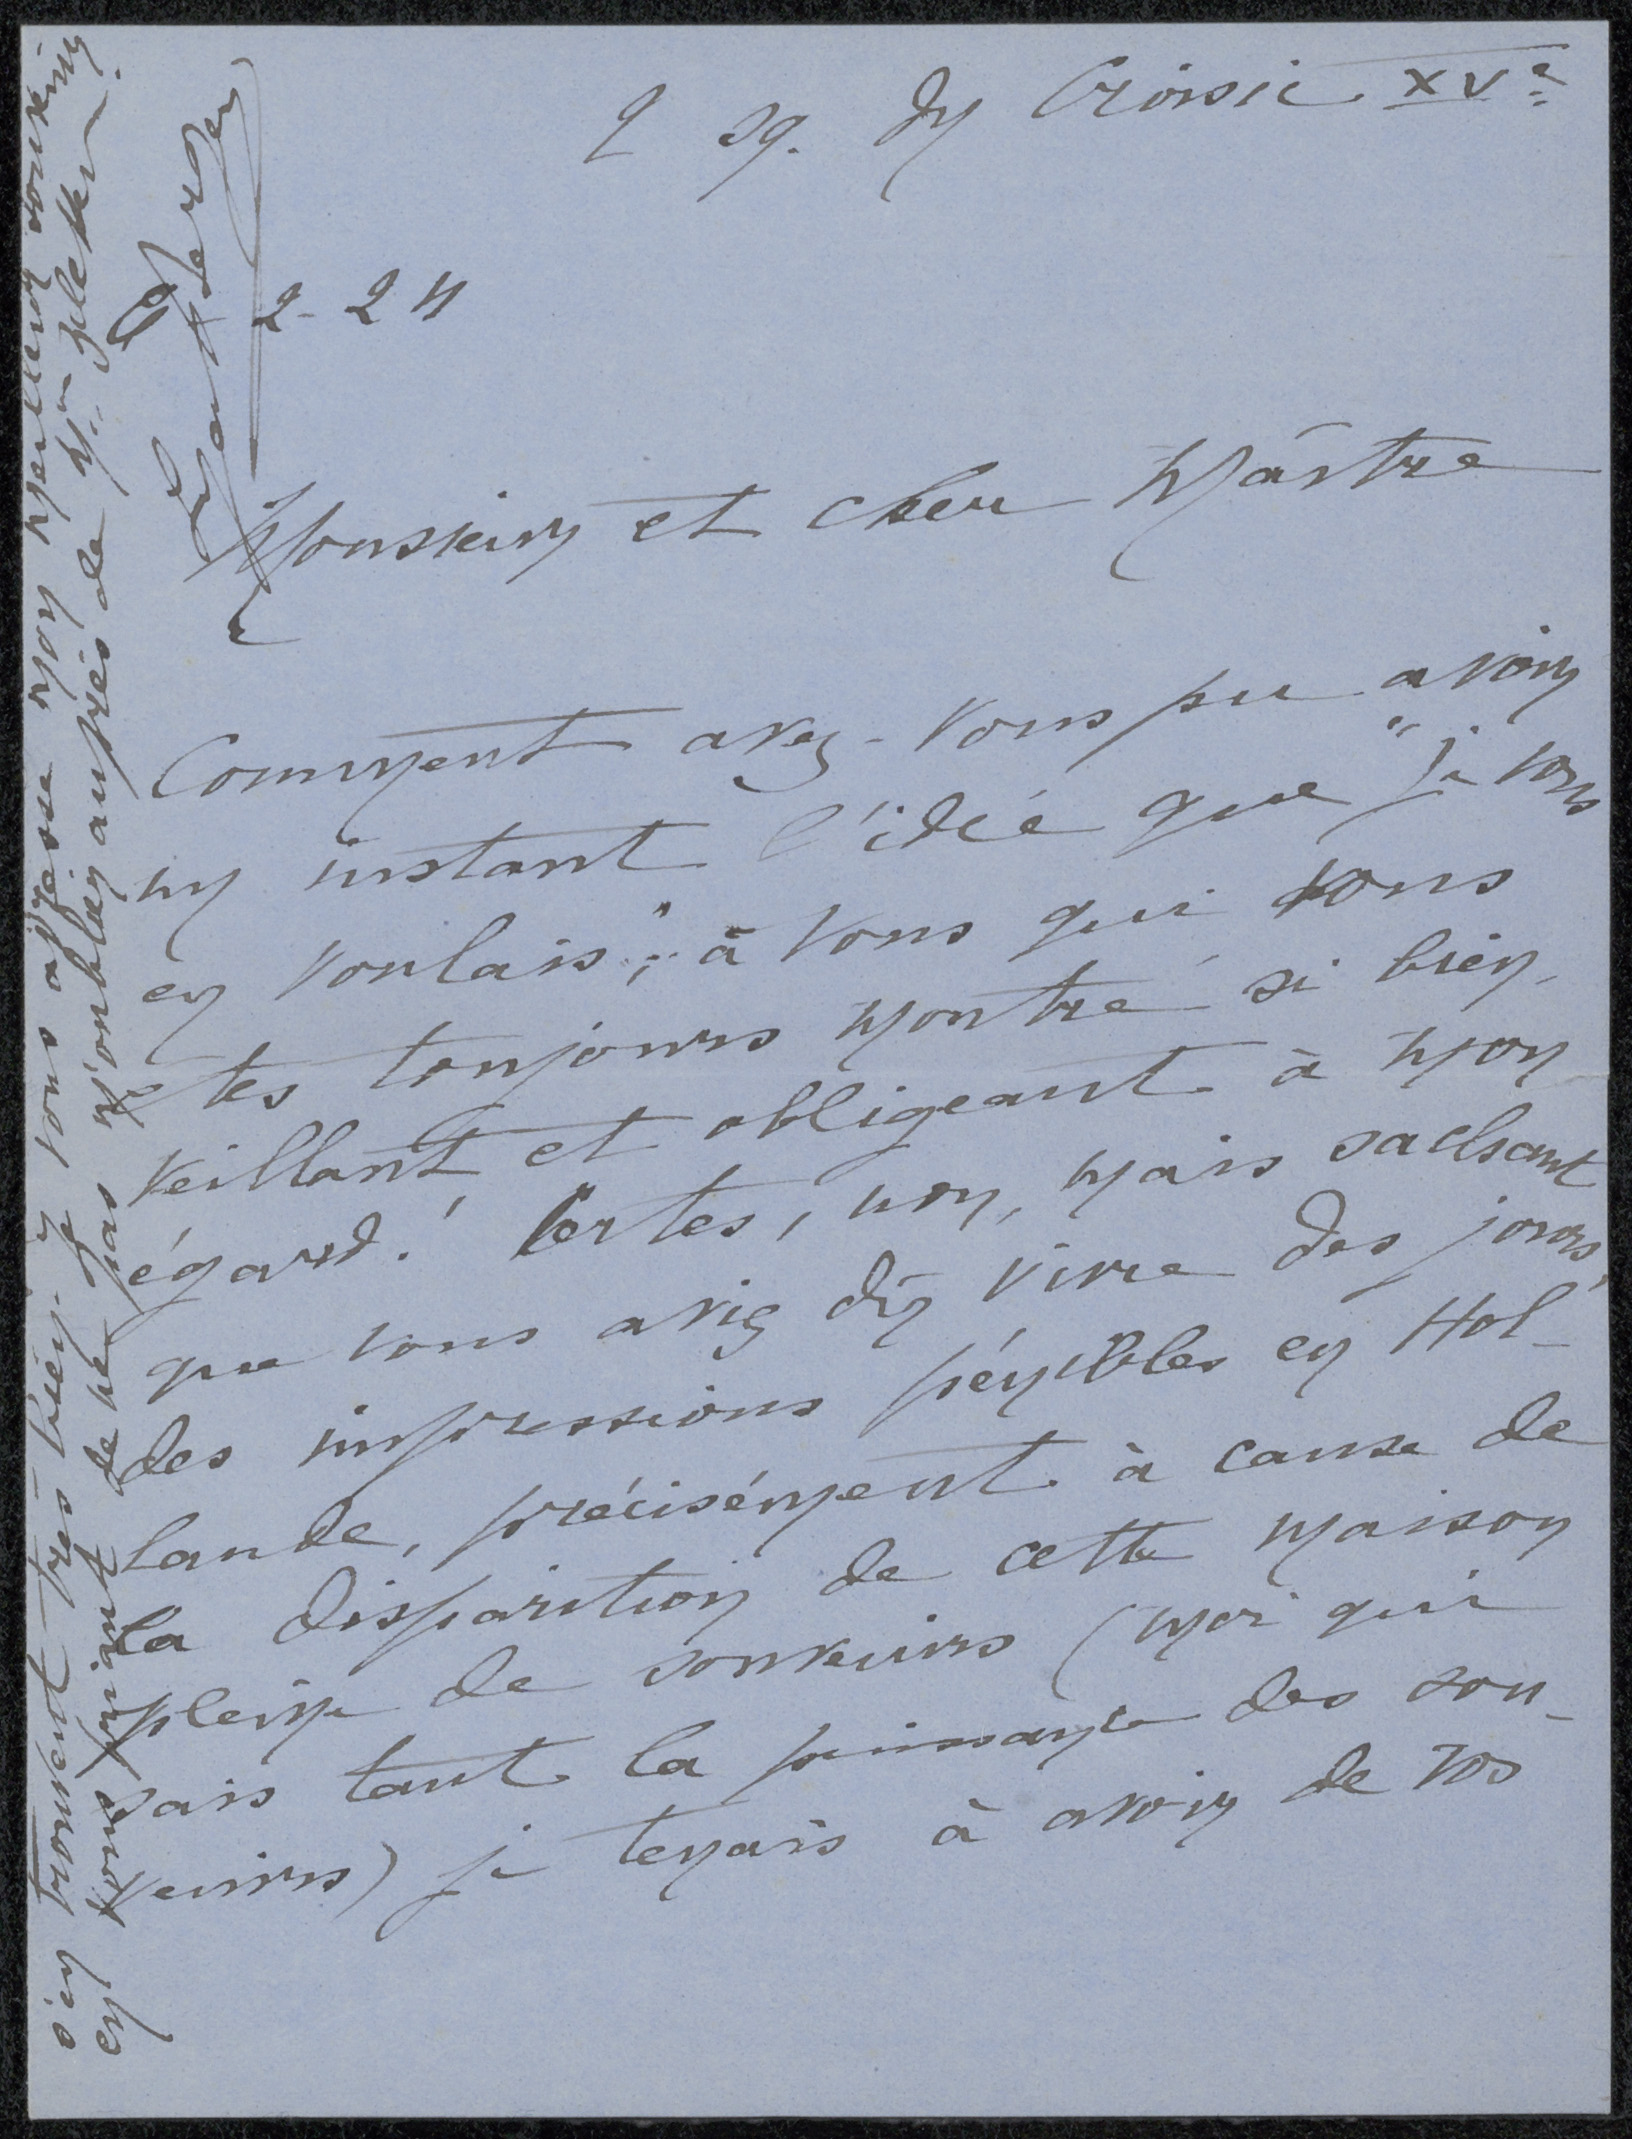 2 sq. du Croisic XVe
2-24
Monsieur et cher Maître
Comment avez-vous pu avoir
un instant l'idée que "je vous
en voulais", à vous qui vous
êtes toujours montré si bien
veillant et obligeant à mon
égard! Certes, non, mais sachant
que vous aviez dû vivre des jours,
des impressions pénibles en Hol-
lande, précisément à cause de
la disparition de cette maison
pleine de souvenirs (moi qui
sais tant la puissance des sou-
venirs) je tenais à avoir de vos
s'en trouvent très bien. Je vous adresse mon meilleur souvenir
en vous priant de ne pas m'oublier auprès de Mme